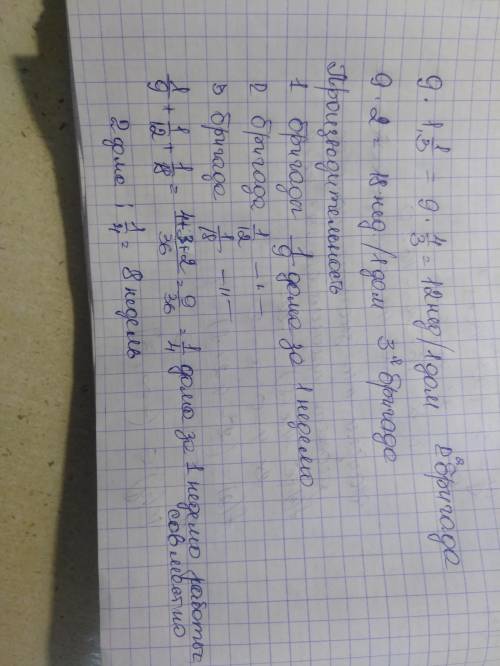 9 · 1 1/3 = 9 · 4/3 = 12 нед/1 дом 2ª бригада
9 · 2 = 18 нед/1 дом 3ª бригада
Производительность
1 бригады 1/9 дома за 1 неделю
2 бригада 1/12 –"–
3 бригада 1/18 –"–
1/9 + 1/12 + 1/18 = 4+3+2/36 = 9/36 = 1/4 дома за 1 неделю работы
совместно
2 дома : 1/4 = 8 недель